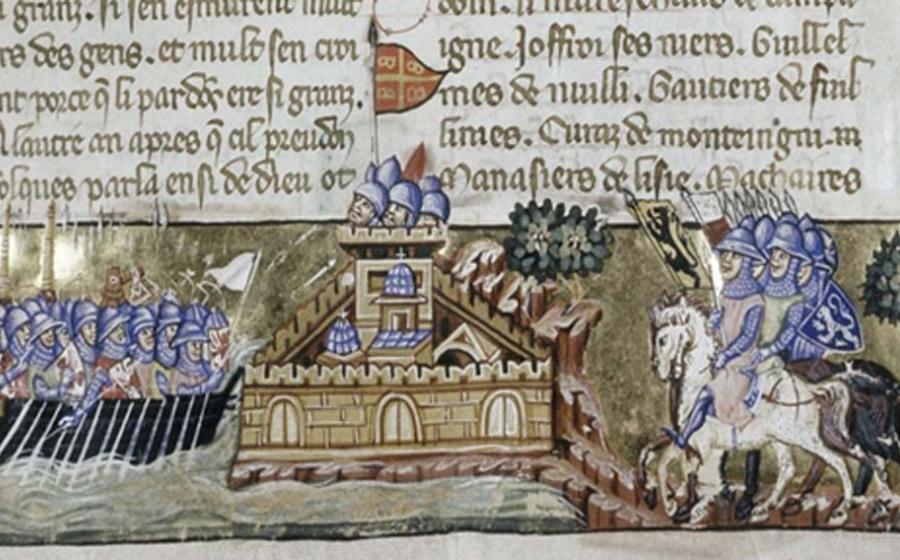 granz. Si sen esmurent mult
rs des gens. et mult sen croi
nt porce q̃ li pardõs ere si granz.
A lautre an apres q̃ cil preudõ
olques parla ensi de dieu ot
li mareschaus de campa
igne. Joffroi ses niers. Guillel
mes de nuilli. Gautiers de fuil
lines. Euraz de monteingni.
Manasiers de lisle. Machaires